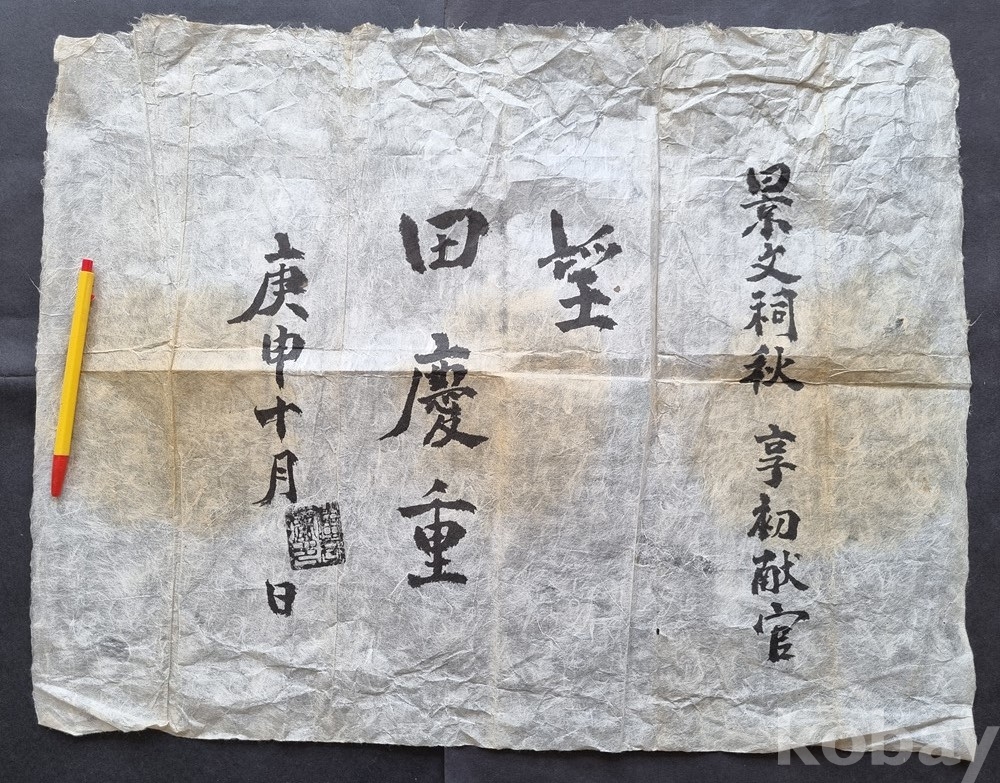 景文祠秋 享初献官
望
田慶重
庚申十月 日
kobay